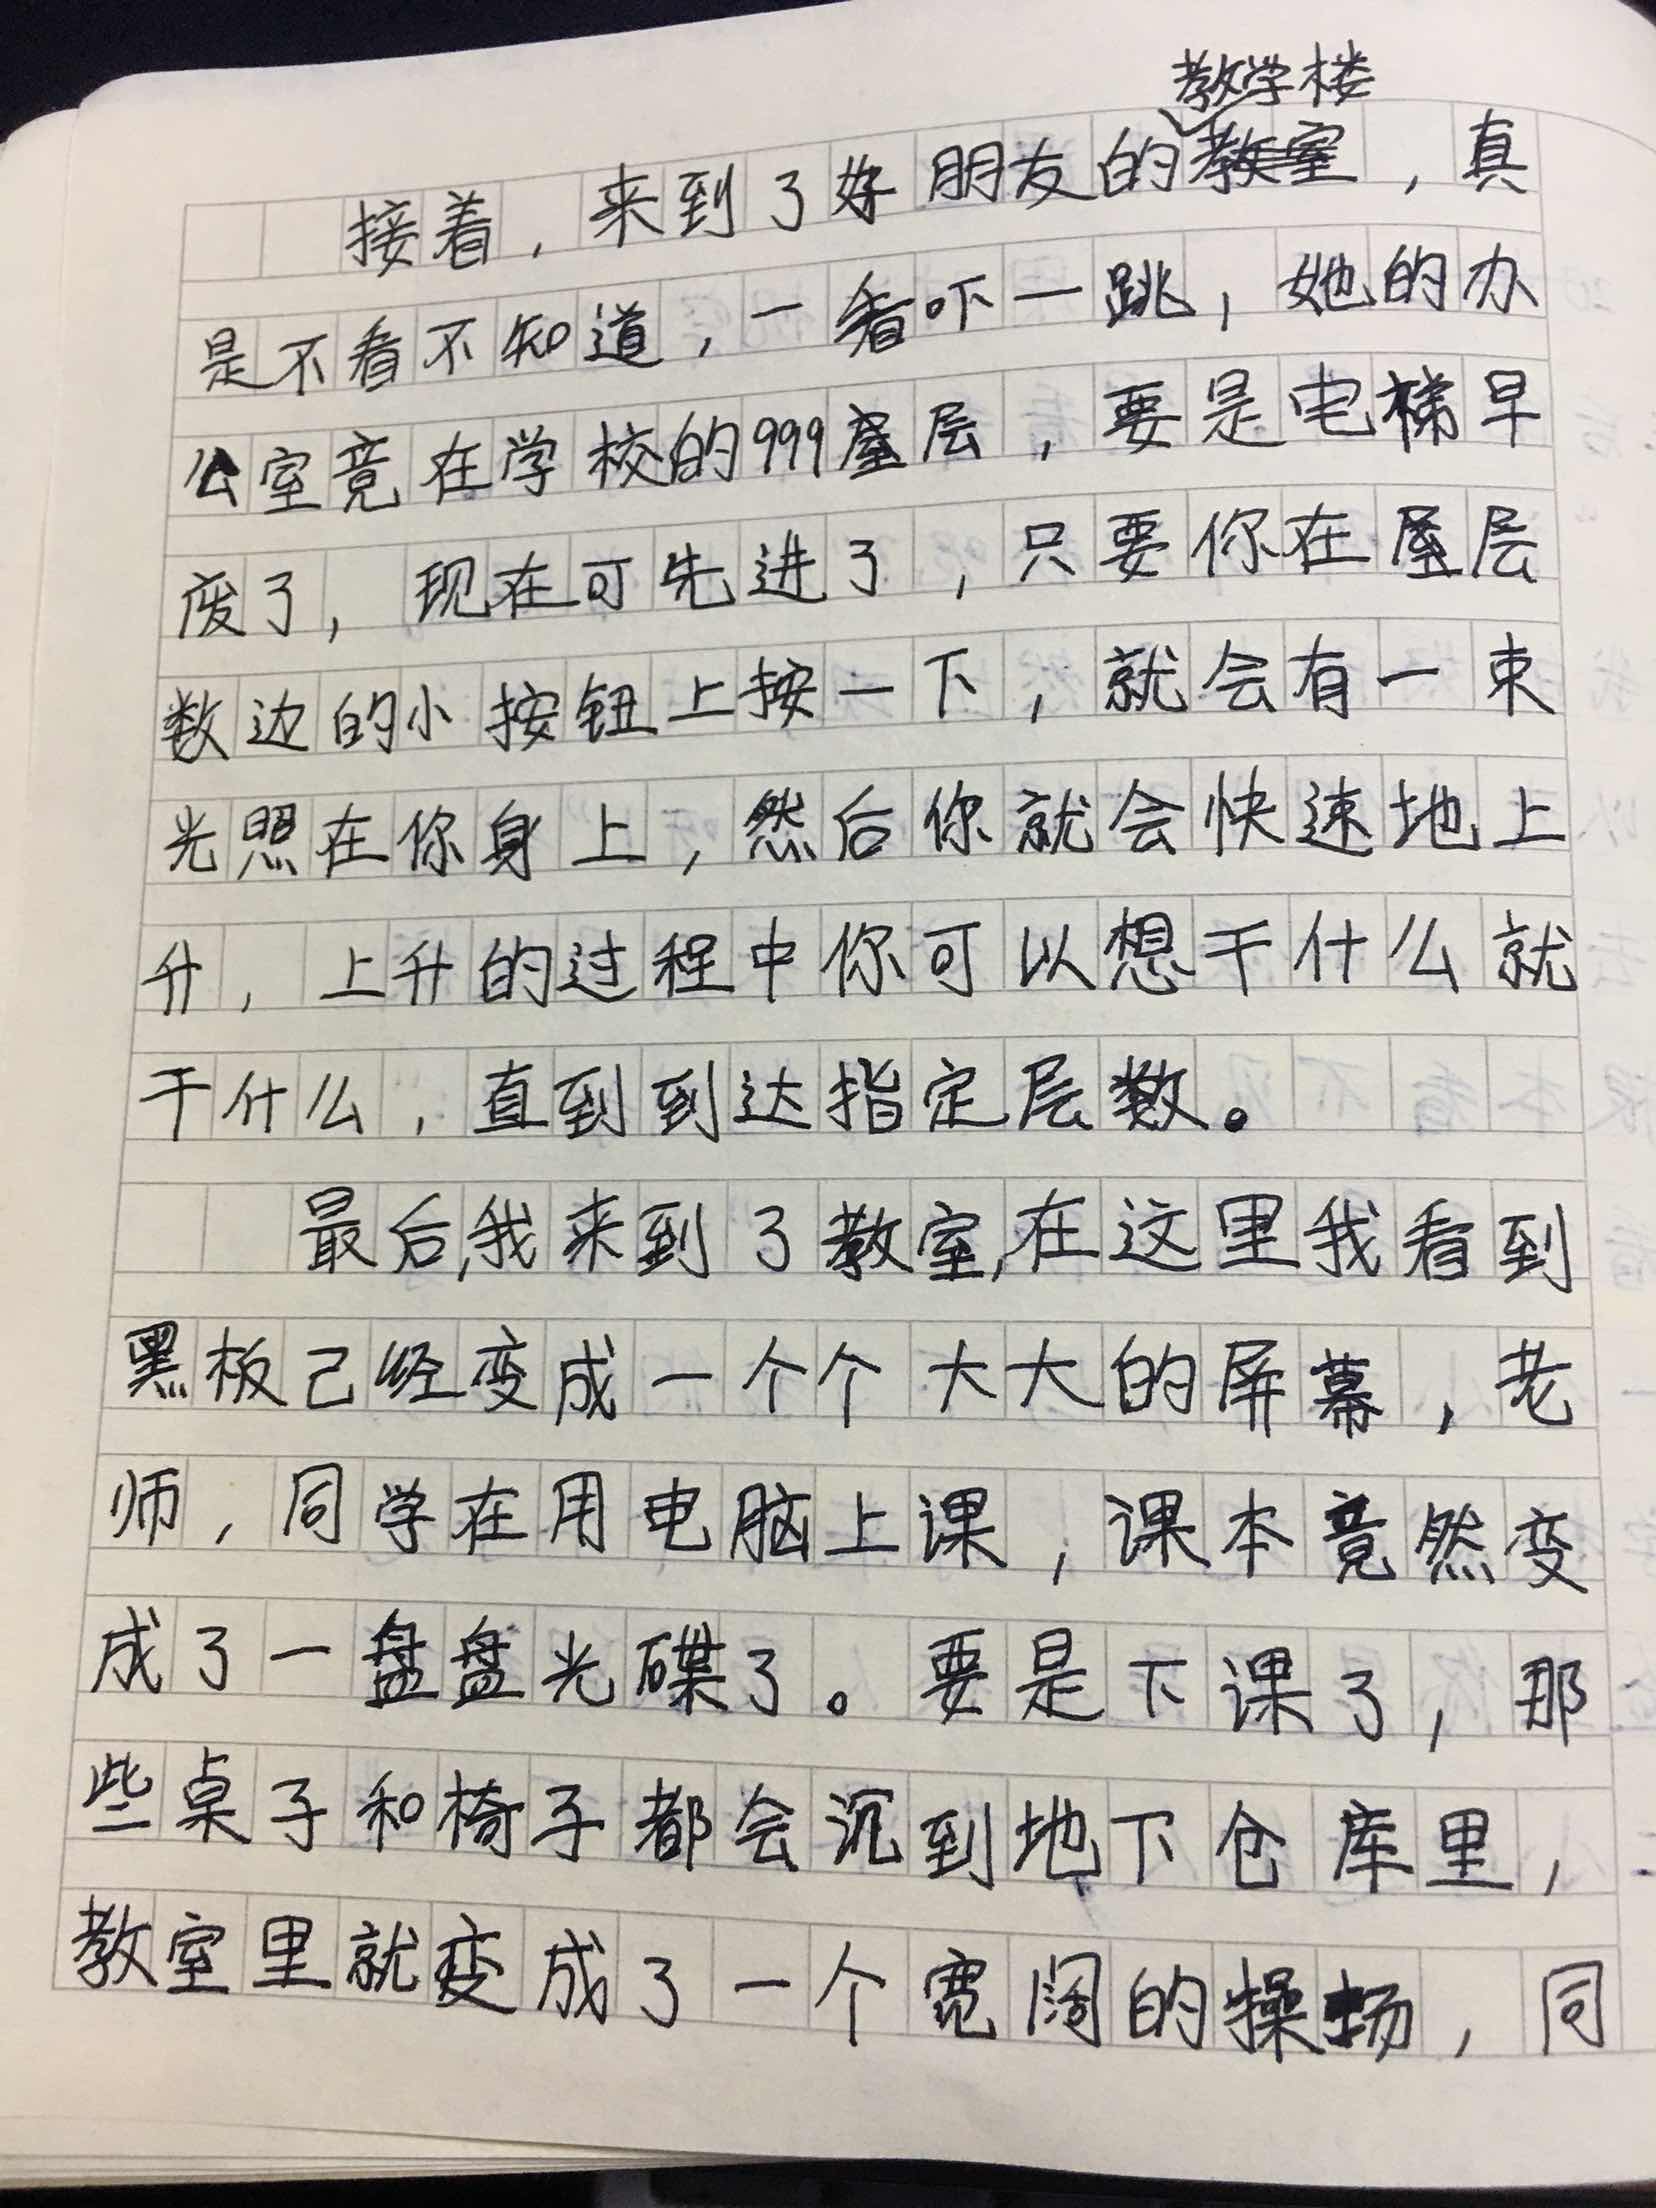 教学楼
接着，来到了好朋友的教室，真
是不看不知道，一看吓一跳，她的办
公室竟在学校的999屋层，要是电梯早
废了，现在可先进了，只要你在屋层
数边的小按钮上按一下，就会有一束
光照在你身上，然后你就会快速地上
升，上升的过程中你可以想干什么就
干什么，直到到达指定层数。
最后，我来到了教室，在这里我看到
黑板已经变成一个个大大的屏幕，老
师，同学在用电脑上课，课本竟然变
成了一盘盘光碟了。要是下课了，那
些桌子和椅子都会沉到地下仓库里，
教室里就变成了一个宽阔的操场，同